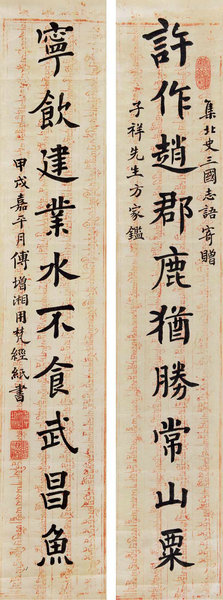 集北史三國志語寄贈
許作趙郡鹿猶勝常山粟
子祥先生方家鑑
寧飲建業水不食武昌魚
甲戌嘉平月傅增湘用梵經紙書